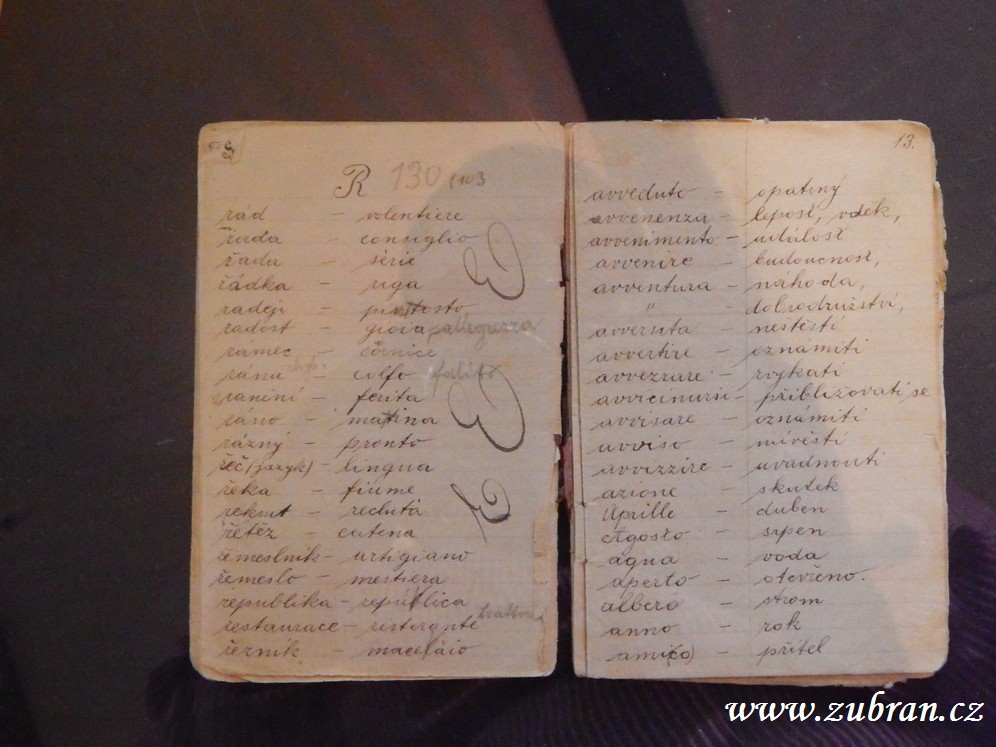 8
R 130 103
rád - volentiere
řada - consiglio
řada - série
řádka - riga
raději - piuttosto
radost - gioia, allegrezza
rámec - cornice
rána - colpo
ranění - ferita
ráno - mattina
rázný - pronto
řeč (jazyk) - lingua
řeka - fiume
rekrut - recluta
řetěz - catena
řemeslník - artigiano
řemeslo - mestiera
republika - republica
restaurace - ristorante
řezník - macelaio
13.
avveduto - opatrný
avvenenza - lepost, vděk,
avvenimento - událost
avvenire - budoucnost,
avventura - náhoda,
" dobrodružství,
avversita - neštěstí
avvertire - oznámiti
avvezzare - zvykati
avvicinarsi - přibližovati se
avvisare - oznámiti
avviso - návěstí
avvizzire - uvadnouti
azione - skutek
Aprille - duben
Agosto - srpen
aqua - voda
aperto - otevřeno.
albero - strom
anno - rok
ami(co) - přítel
www.zubran.cz